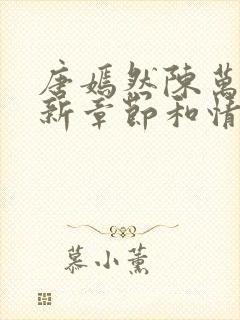 唐嫣然陳萬
新章節和情
慕小薰